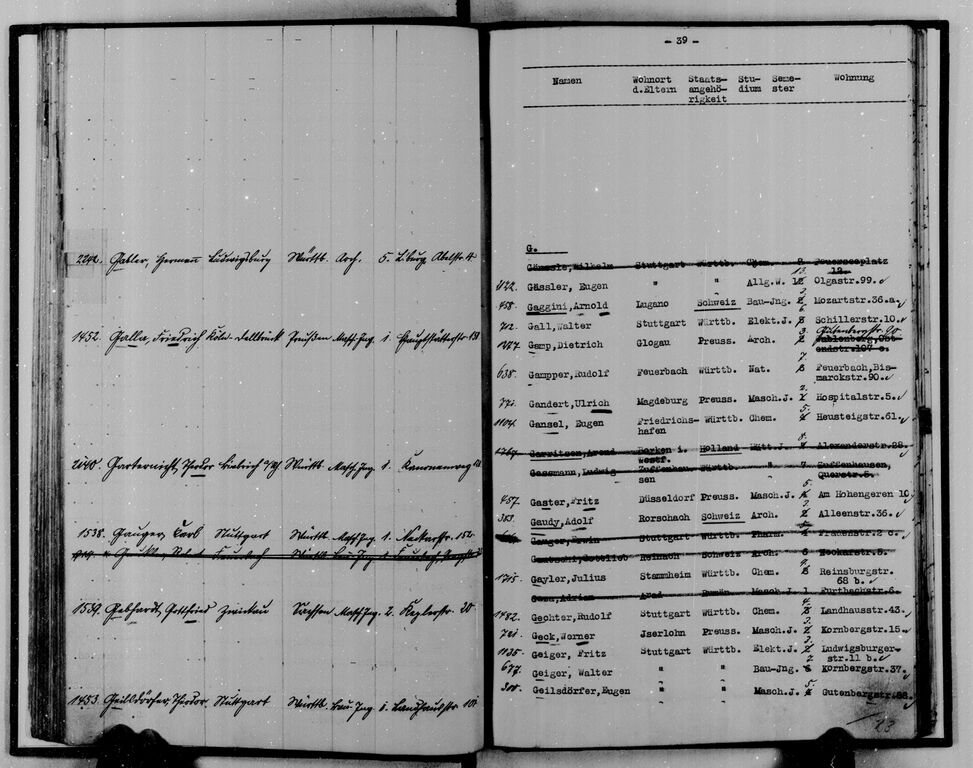 2242. Gabler, Hermann Ludwigsburg Württ. Arch. 5. L'burg, Abelstr. 4
1452. Galla, Friedrich Köln-Dellbrück Preußen Masch.Ing. 1.
2040. Gartenicht, Theodor Württ. Masch.Ing. 1. Kanonenweg
1538. Gauger, Carl Stuttgart Württ. Masch.Ing. 1. Neckarstr. 152
1539. Gebhardt, Gottfried Zwickau Sachsen Masch.Ing. 2. Keplerstr. 20
1453. Geildörfer, Theodor Stuttgart Württ. Bau.Ing. 1. Landhausstr.
- 39 -
Namen Wohnort d.Eltern Staats-angehö-rigkeit Stu-dium Seme-ster Wohnung
G.
Gänssle, Wilhelm Stuttgart Württb. Chem. Feuerseeplatz
12.
1122. Gässler, Eugen " " Allg.W. Olgastr.99.
458. Gaggini, Arnold Lugano Schweiz Bau-Jng. Mozartstr.36.a
712. Gall, Walter Stuttgart Württb. Elekt.J. Schillerstr.10.
Gutenbergstr. 90
1277. Gamp, Dietrich Glogau Preuss. Arch. 3. Gablenberg, Ost
endstr.107 c.
638. Gampper, Rudolf Feuerbach Württb. Nat. 7. Feuerbach, Bis-
marckstr.90.
771. Gandert, Ulrich Magdeburg Preuss. Masch.J. 2. Hospitalstr.5.
1104. Gansel, Eugen Friedrichs- Württb. Chem. 5. Heusteigstr.61.
hafen
Garritsen, Arend Borken i. Holland Hütt.J. 8. Alexanderstr.28.
Westf.
Gassmann, Ludwig Zuffenhau- Württb. " 7 Zuffenhausen,
sen Querstr.5.
457. Gaster, Fritz Düsseldorf Preuss. Masch.J. 5. Am Hohengeren 10
Gaudy, Adolf Rorschach Schweiz Arch. Alleenstr.36.
Gauger, Erwin Stuttgart Württb. Pharm. Frauenstr.2 c.
Gautschi, Gottlieb Reinach Schweiz Arch. 6 Neckarstr.5.
1715. Gayler, Julius Stammheim Württb. Chem. 9. Reinsburgstr.
68 b.
Arad Rumän. Masch.J. Furtbachstr.6.
1482. Gechter, Rudolf Stuttgart Württb. Chem. 4. Landhausstr.43.
721. Geck, Werner Jserlohn Preuss. Masch.J. 3. Kornbergstr.15.
1135. Geiger, Fritz Stuttgart Württb. Elekt.J. 3. Ludwigsburger-
str.11 b.
677. Geiger, Walter " " Bau-Jng. 2 Kornbergstr.37.
300. Geilsdörfer, Eugen " " Masch.J. 5. Gutenbergstr.88.
23